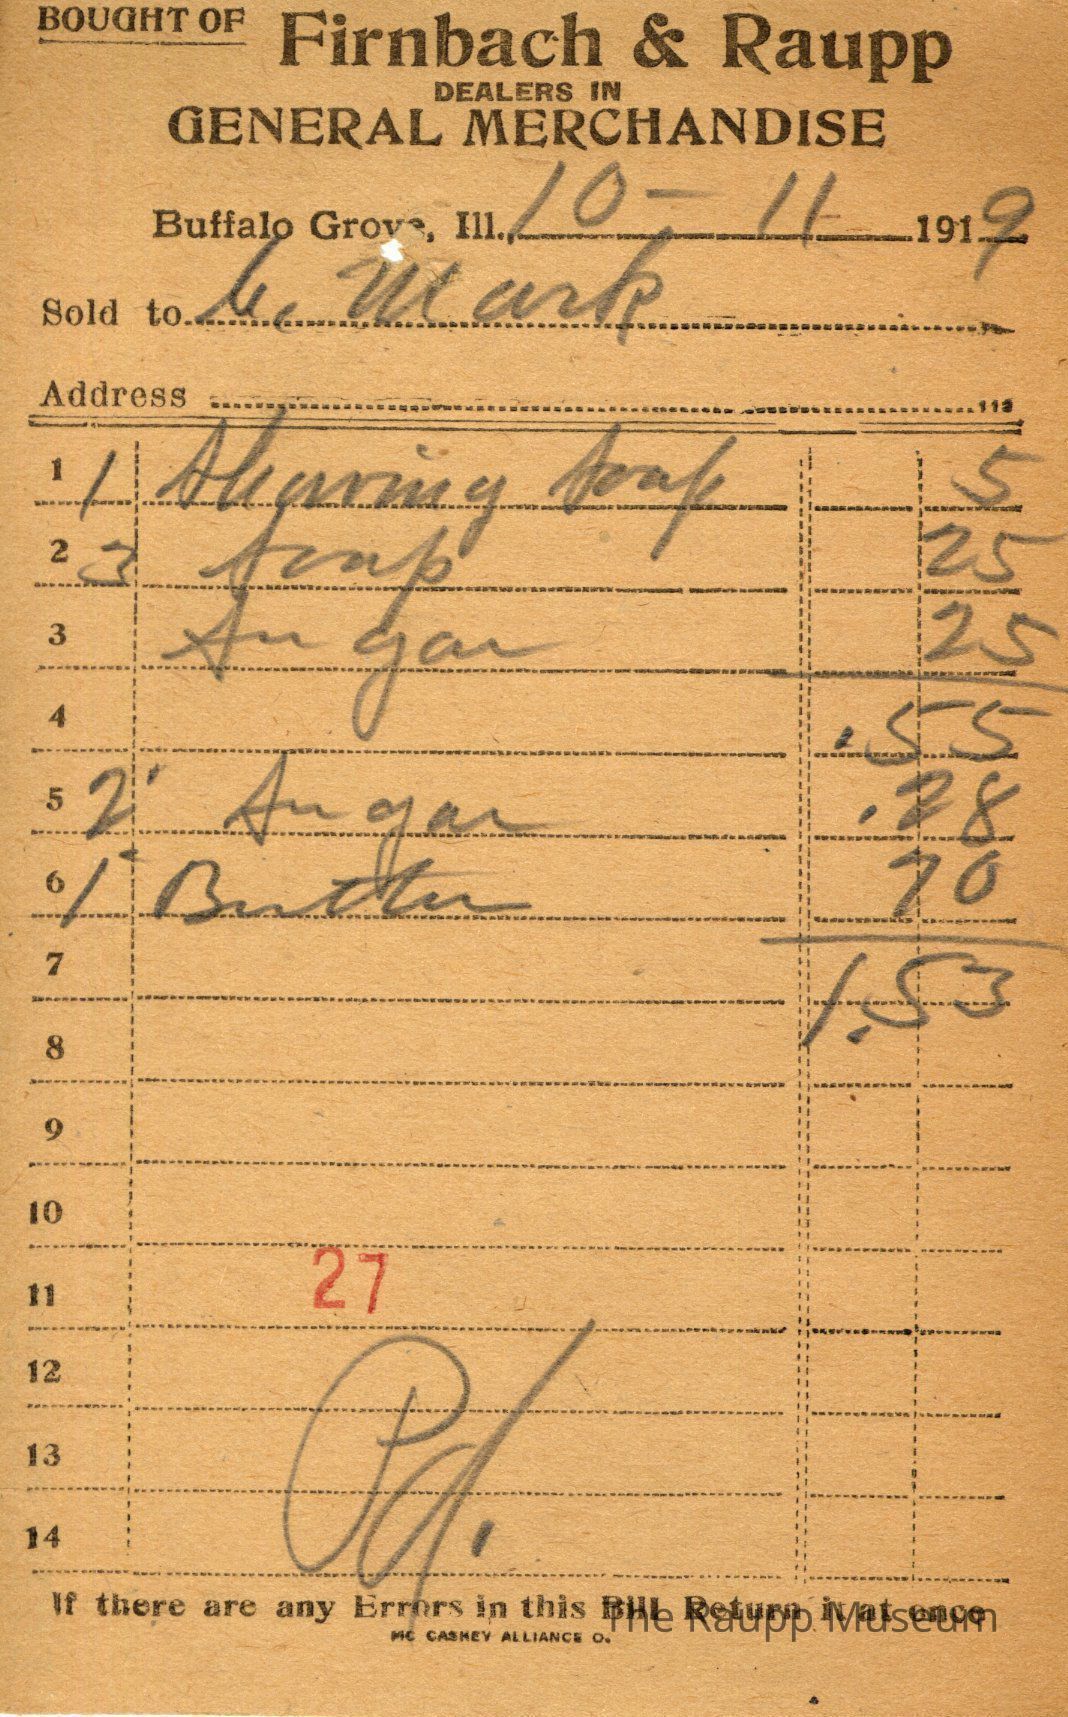 BOUGHT OF Firnbach & Raupp
DEALERS IN
GENERAL MERCHANDISE
Buffalo Grove, Ill., 10 - 11 1919
Sold to Mark
Address 113
1 1 Shaving Soap 5
2 3 Soap 25
3 Sugar 25
4 .55
5 2 Sugar .28
6 1 Butter 70
7 1.53
8
9
10
11 27
12
13 Pd.
14
If there are any Errors in this Bill Return it at once
The Raupp Museum
MC CASKEY ALLIANCE O.